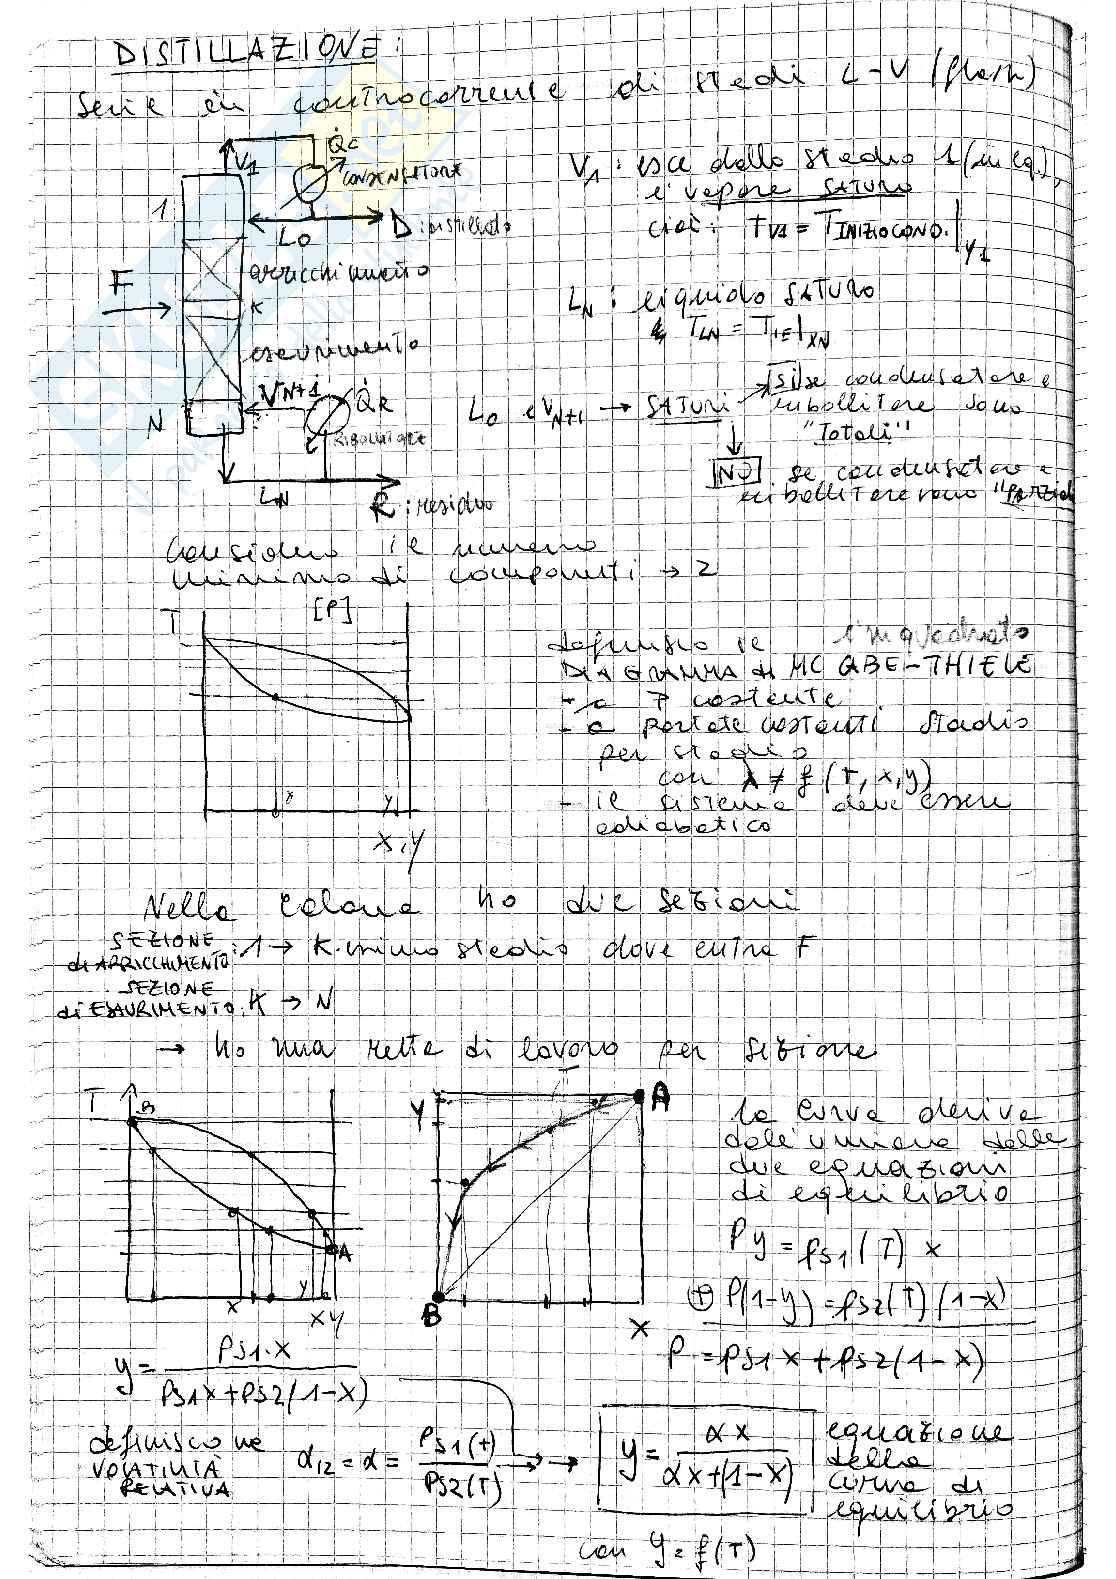 DISTILLAZIONE:
Serie in controcorrente di stadi L-V (flash)
V1
Q̇c
CONDENSATORE
1
L0
D: distillato
arricchimento
F
K
esaurimento
VN+1
Q̇R
N
RIBOLLITORE
LN
R: residuo
V1: esce dallo stadio 1 (in eq.),
e' vapore SATURO
cioè: TV1 = TINIZIOCOND.|y1
LN: liquido SATURO
TLN = TIE|XN
L0 e VN+1 → SATURI
SI se condensatore e
ribollitore sono
"Totali"
NO se condensatore e
ribollitore sono "Parziali
Considero il numero
minimo di componenti → 2
T
[P]
x
y
X,Y
definisco
DIAGRAMMA di MC CABE-THIELE
- a P costante
- a portate costanti stadio
per stadio
con λ ≠ f (T, x, y)
- il sistema deve essere
adiabatico
Nella colonna ho due sezioni
SEZIONE
di ARRICCHIMENTO: 1 → K-esimo stadio dove entra F
SEZIONE
di ESAURIMENTO: K → N
→ ho una retta di lavoro per sezione
T
B
A
x
y
X Y
Y
A
B
X
la curva deriva
dall'unione delle
due equazioni
di equilibrio
Py = Ps1 (T) x
⊕ P(1-y) = Ps2 (T) (1-x)
P = Ps1 x + Ps2 (1-x)
y = Ps1·x / Ps1x + Ps2(1-x)
definisco
VOLATILITÀ
RELATIVA
α12 = α = Ps1(t) / Ps2(T) → →
y = αx / αx+(1-x)
equazione
della
curva di
equilibrio
con y = f(T)